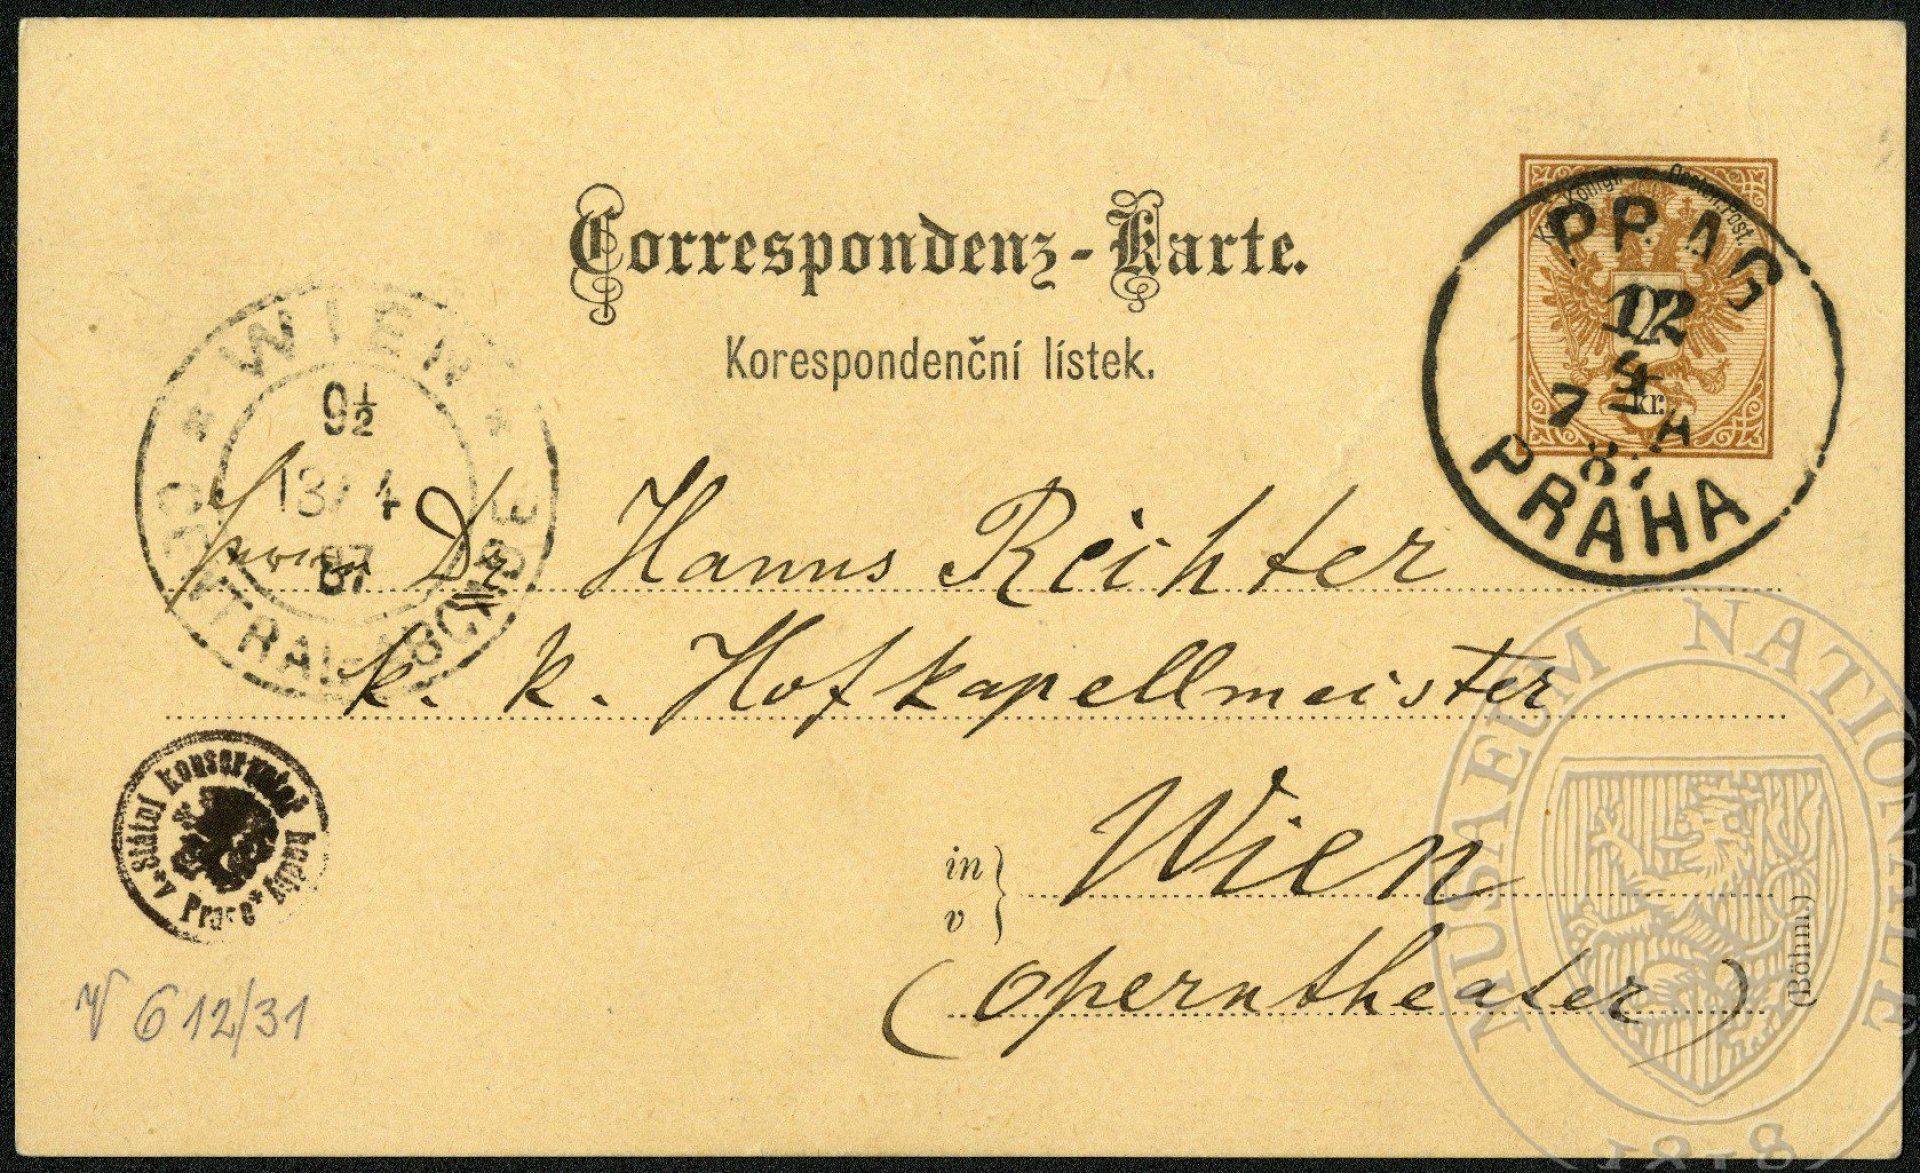 Correspondenz-Karte.
Korespondenční lístek.
Kais. Königl. Oesterr. Post.
2
kr.
PRAG
12
4
7 A
87
PRAHA
WIEN
9½
13/4
87
CENTRAL-
Dr Hanns Reichter
k. k. Hofkapellmeister
in
v
Wien
(Operntheater)
(Böhm.)
*Státní konservatoř hudby v Praze*
V 612/31
MUSAEUM NATIONALE
1818